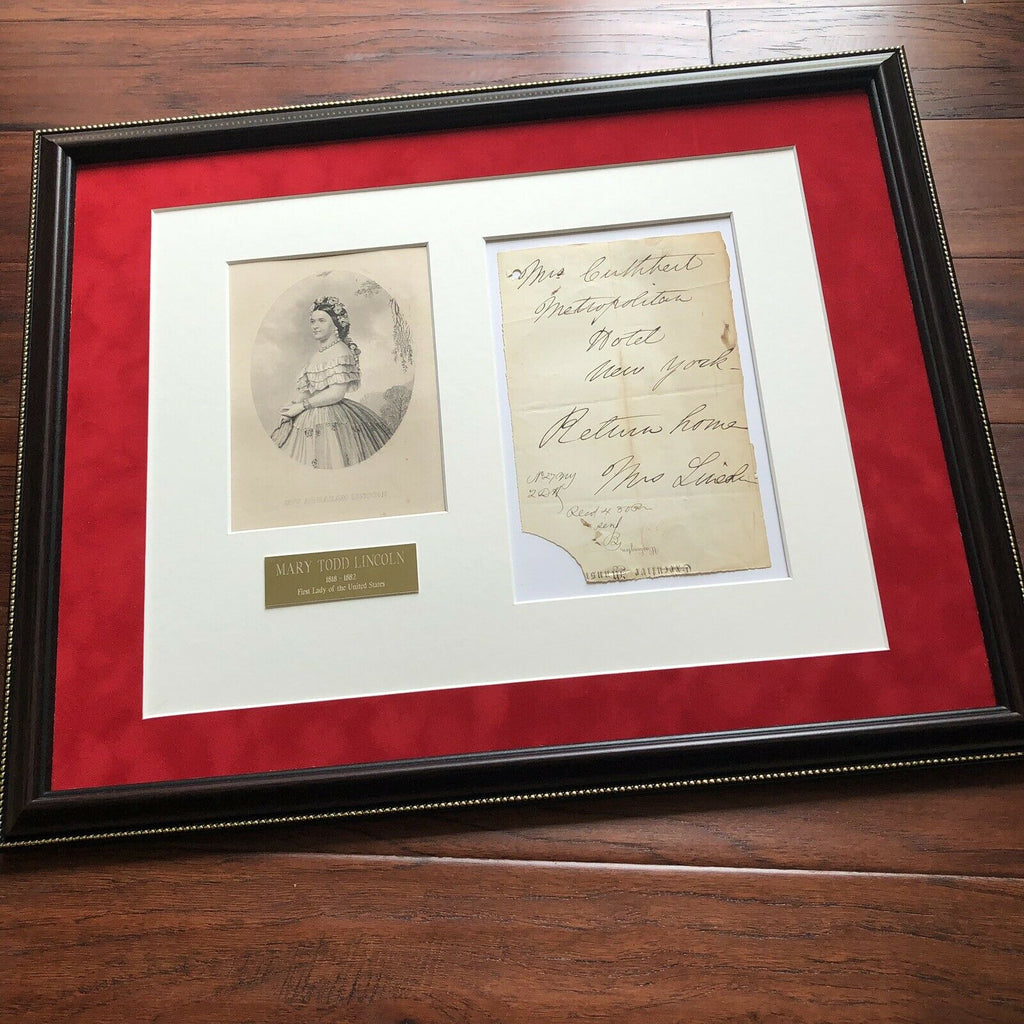 MRS ABRAHAM LINCOLN
MARY TODD LINCOLN
1818 - 1882
First Lady of the United States
Mrs Cuthbert
Metropolitan
Hotel
New York-
Return home
Mrs Lincoln
Recd 4 30 Pm
sent
Washington
Executive Mansi